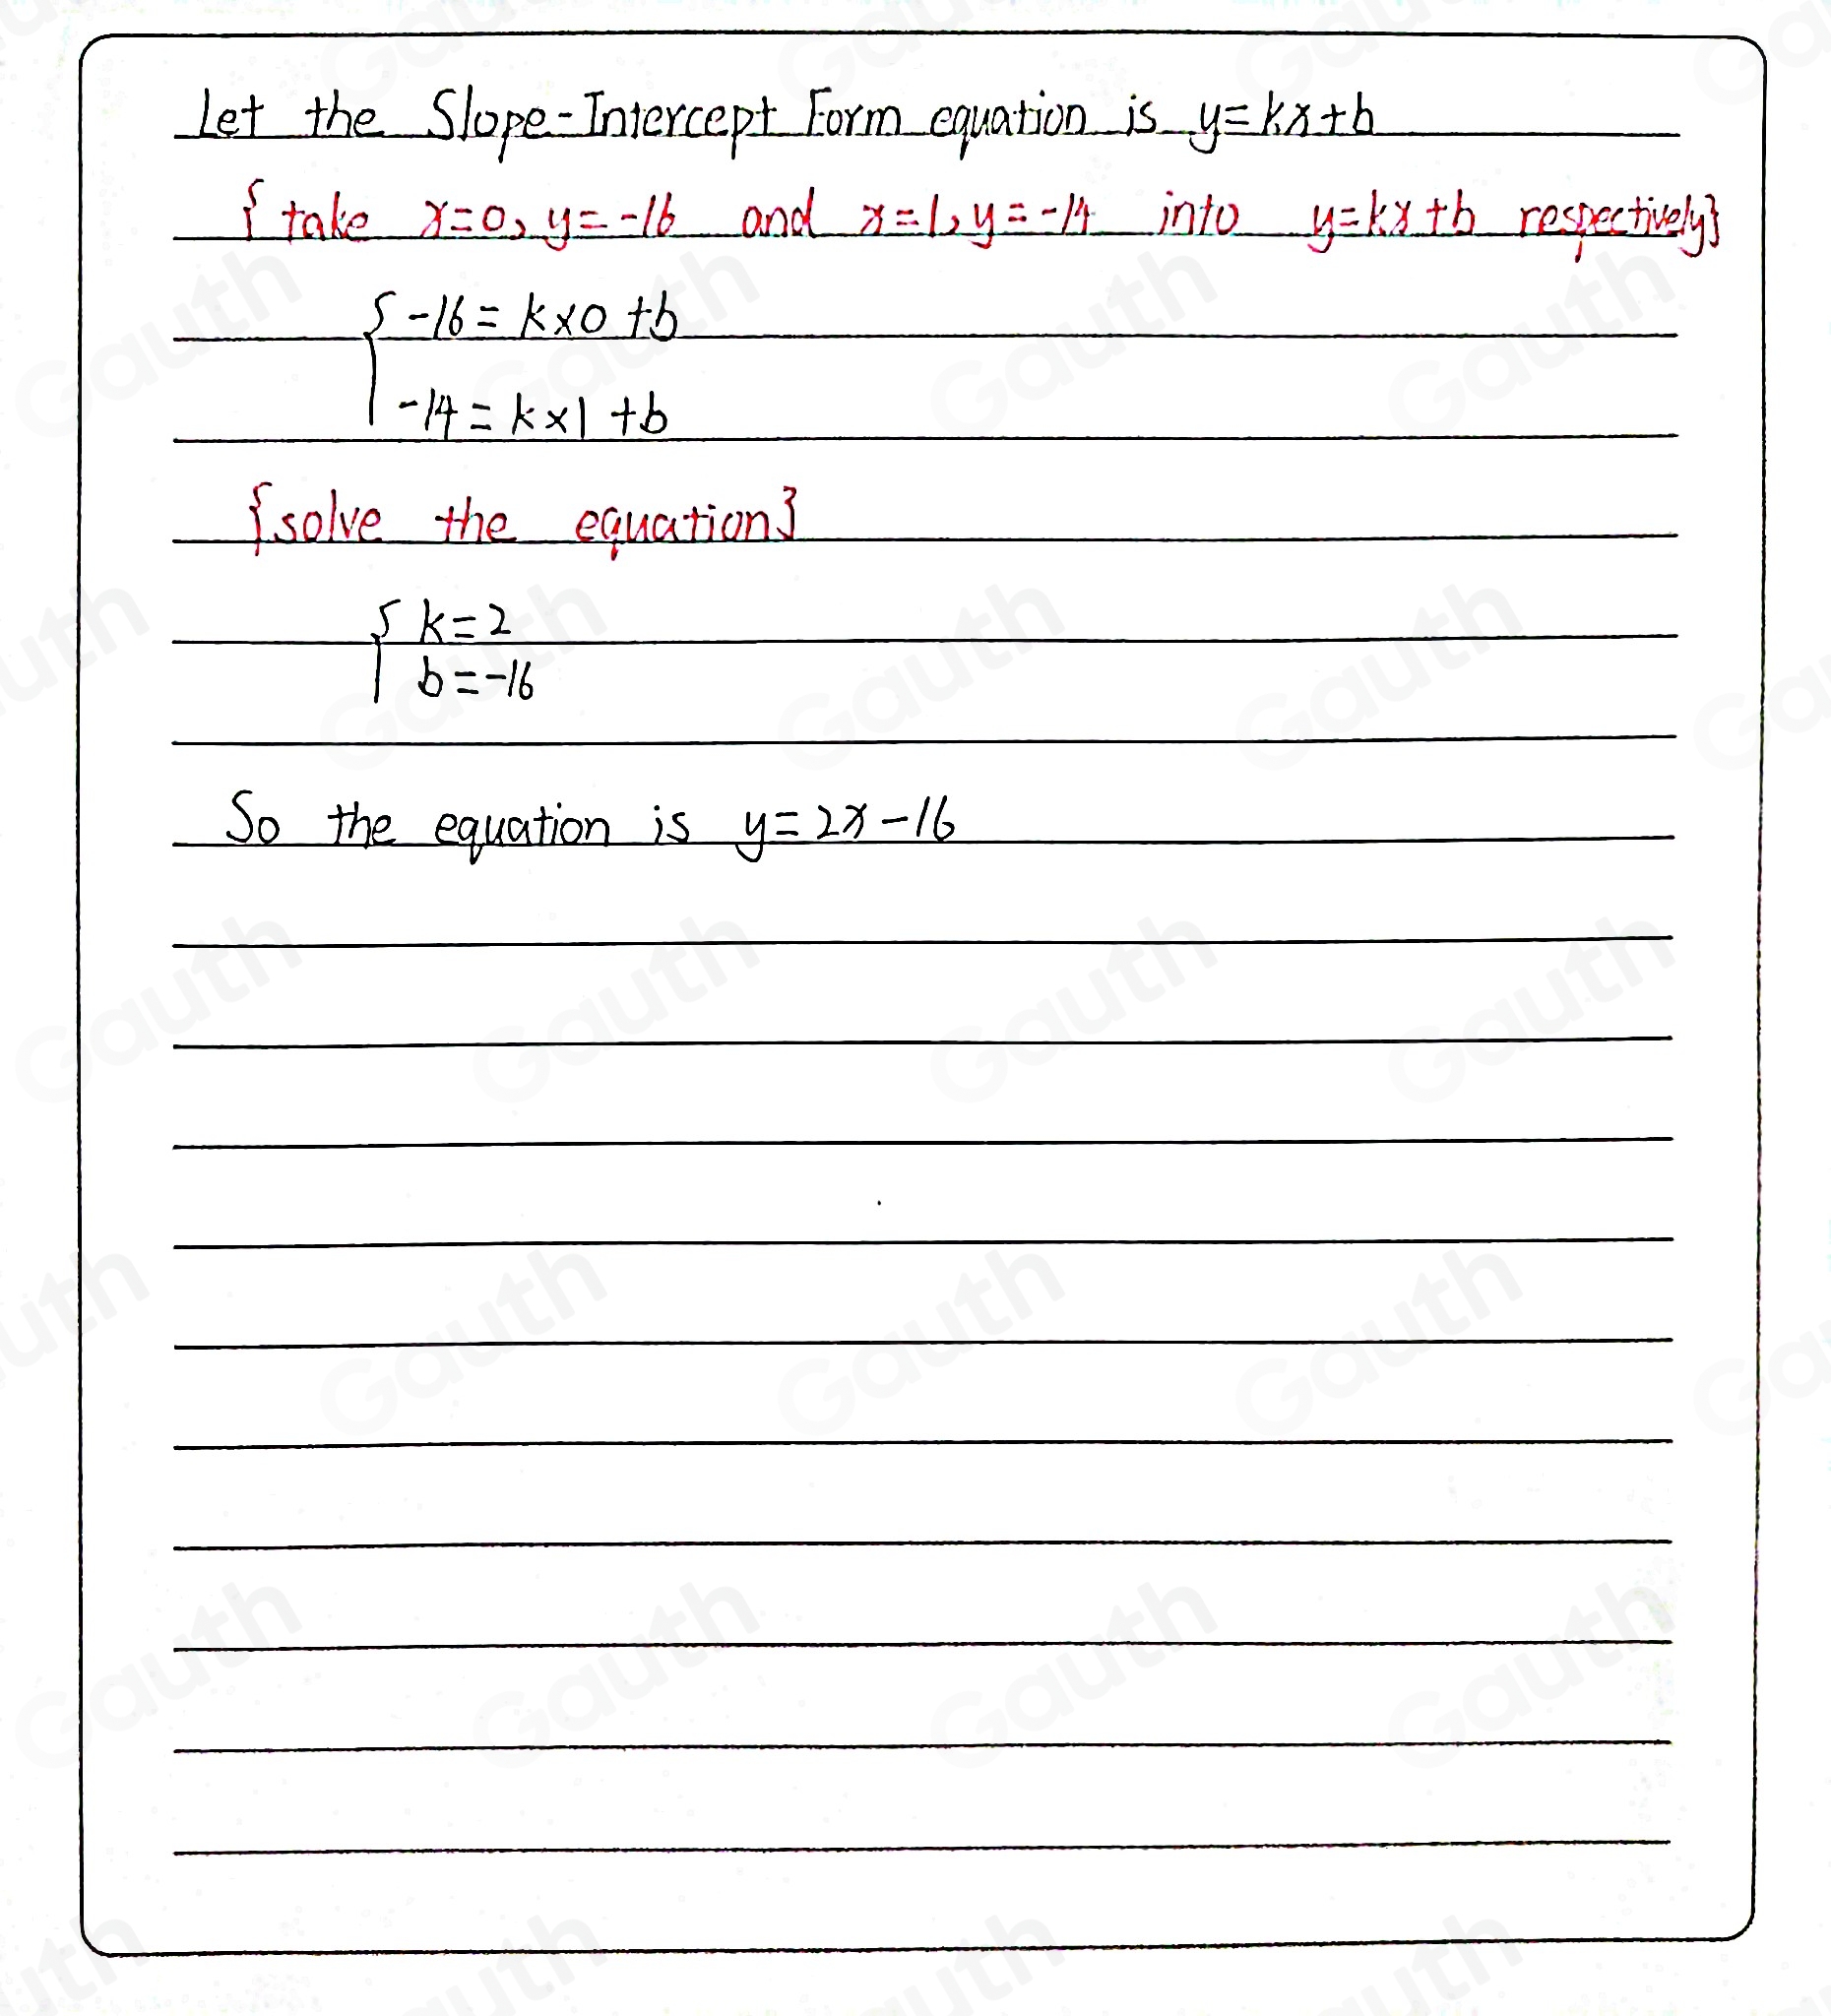 Let the Slope-Intercept Form equation is y=kx+b
{take x=0, y=-16 and x=1, y=-14 into y=kx+b respectively}
{-16=k×0+b
-14=k×1+b
{solve the equation}
{k=2
b=-16
So the equation is y=2x-16